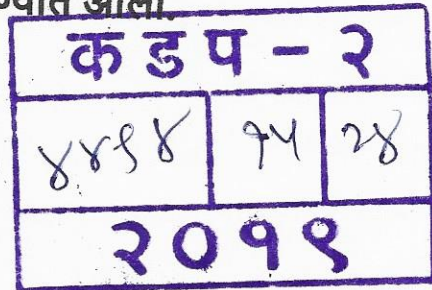 आला.
कडप - २
४४९४ १५ २४
२०१९